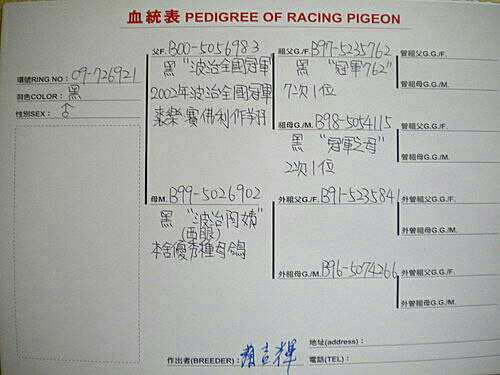 血統表 PEDIGREE OF RACING PIGEON
環號RING.NO : 09-726921
羽色COLOR: 黑
性別SEX: ♂
父F. B00-5056983
黑 "波治全國冠軍"
2002年波治全國冠軍
賽佛利作翔
母M. B99-5026902
黑 "波治肉嬌"
(西眼)
本舍優秀種母鴿
祖父G./F. B97-5235762
黑 "冠軍762"
7次1位
祖母G./M. B98-5054115
黑 "冠軍之母"
2次1位
外祖父G./F. B91-5235841
外祖母G./M. B96-5074266
曾祖父G.G./F.
曾祖母G.G./M.
曾祖父G.G./F.
曾祖母G.G./M.
外曾祖父G.G./F.
外曾祖母G.G./M.
外曾祖父G.G./F.
外曾祖母G.G./M.
作出者(BREEDER) :
地址(address) :
電話(TEL) :